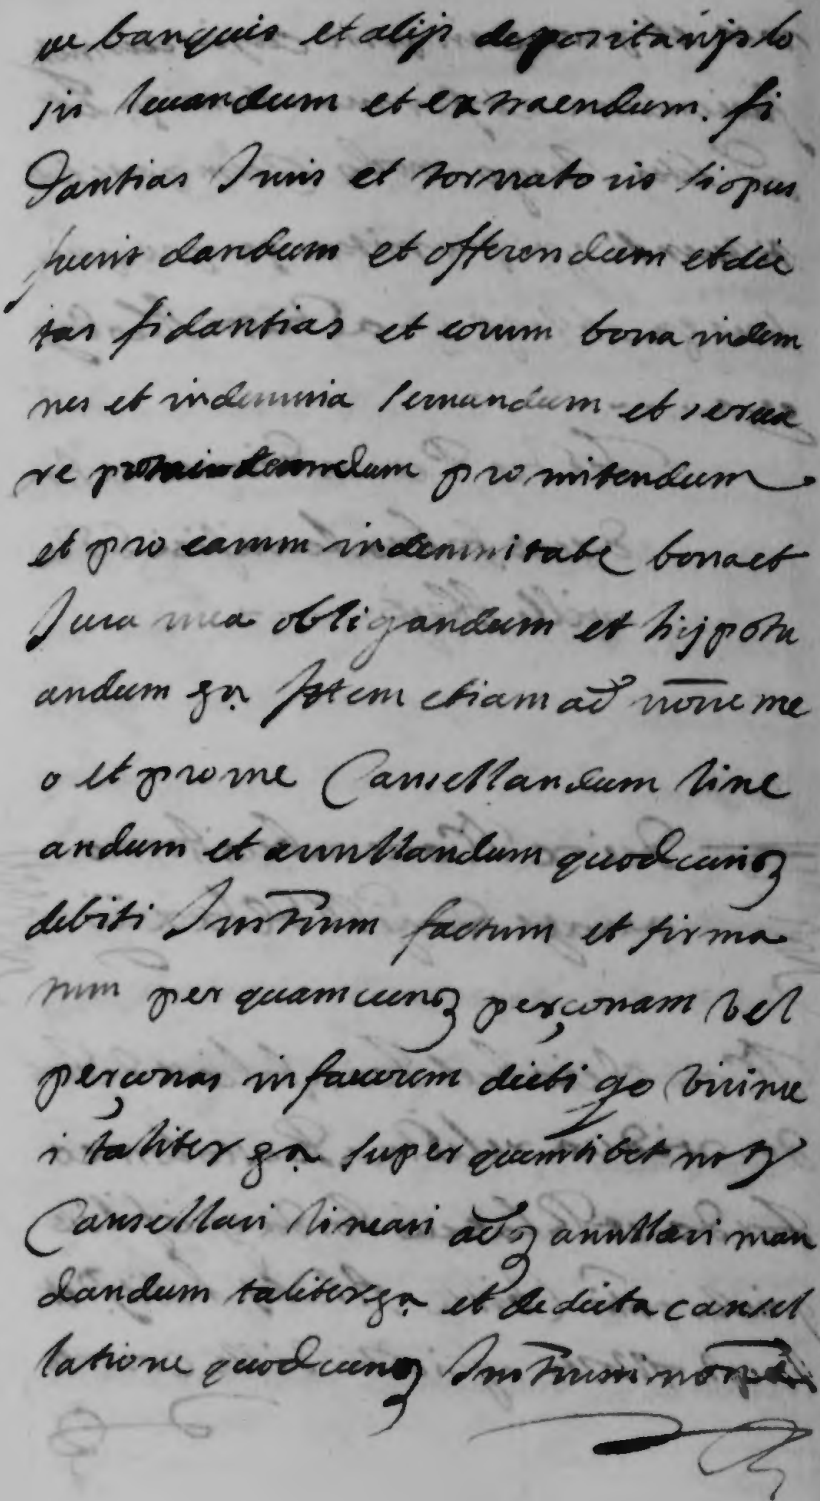 ue banquis et alijs depositarijs lo
sis leuandum et extraendum. fi
dantias Juris et tornatoris si opus
fuerit dandum et offerendum et dic
tas fidantias et eorum bona indem
nes et indemnia seruandum et serua
re promitendum
et pro earum indemnitate bona et
Jura mea obligandum et hijpote
andum ga Ittem etiam ad noñe me
o et pro me Cansellandum line
andum et anullandum quodcunq
debiti Instrum factum et firma
tum per quamcunq perçonam vel
perçonas in fauorem dicti qo
i taliter ga super quamlibet not
Cansellari lineari adq anullari man
dandum taliter ga et de dicta cansel
latione quodcunq Instrum